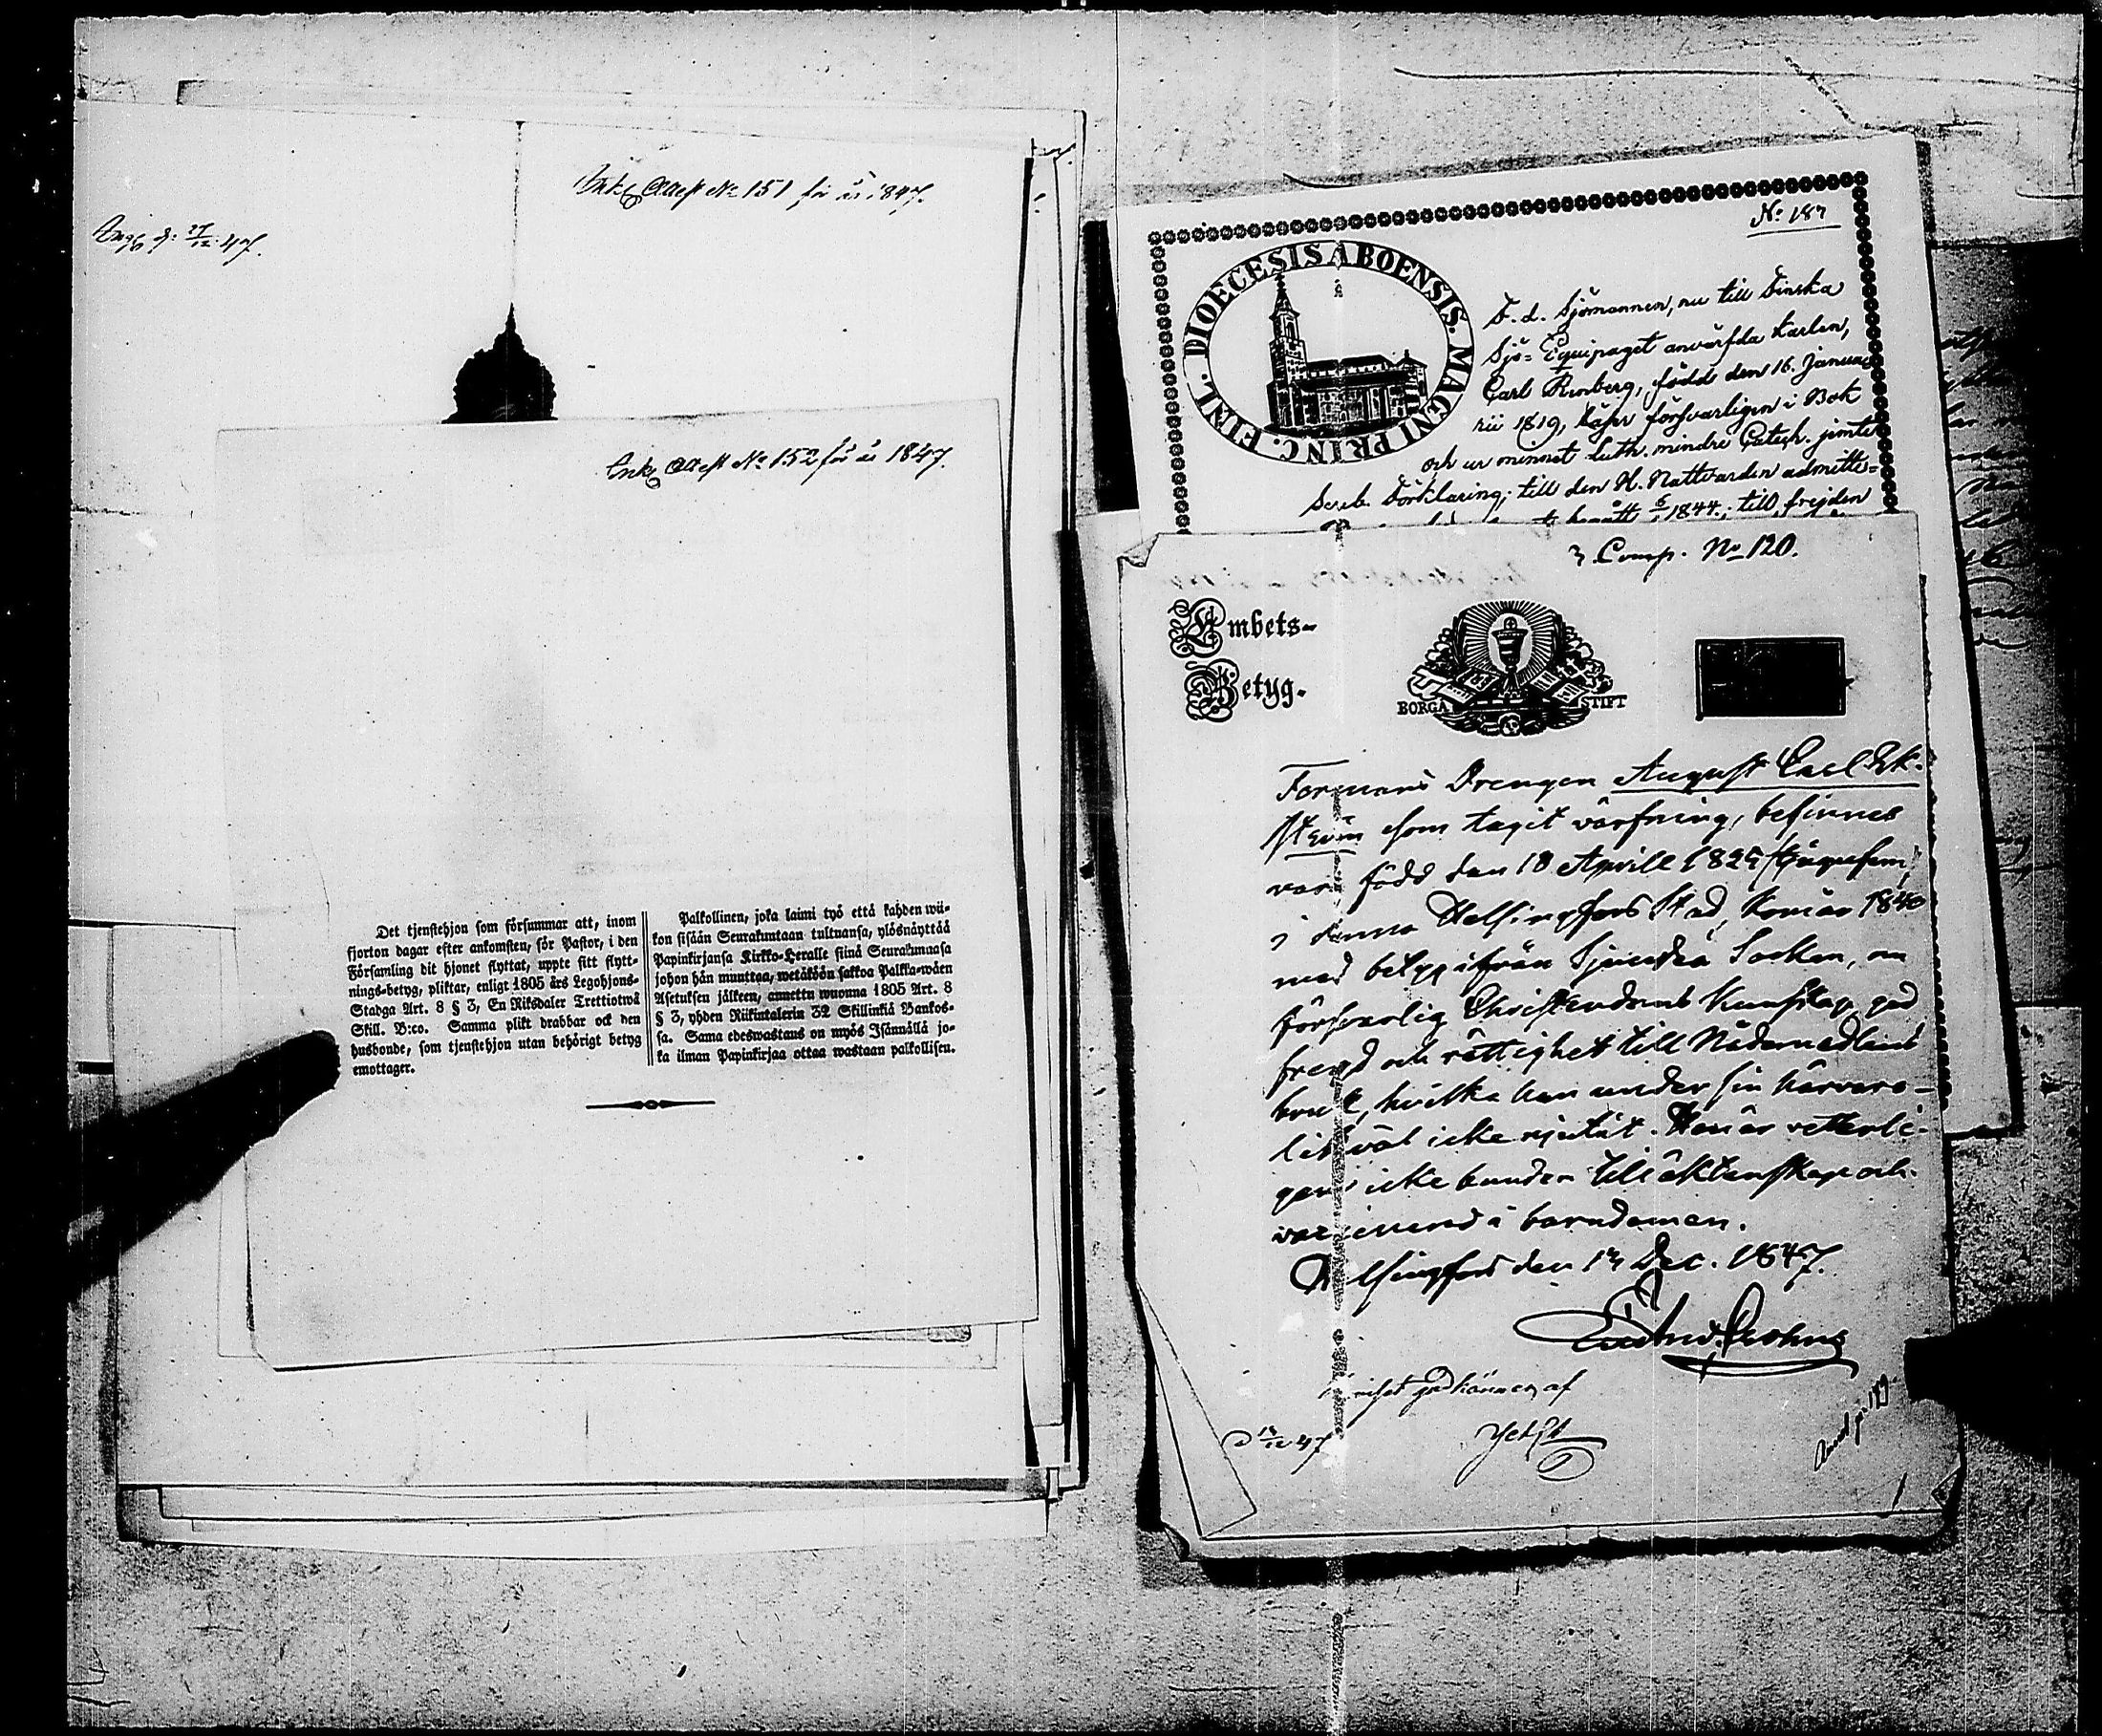 Attest No 151 för år 1847.
27/12 47.
Attest No 152 för år 1847.
Det tjenstehjon som försummar att, inom
fjorton dagar efter ankomsten, för Pastor, i den
Församling dit hjonet flyttat, uppte sitt flytt-
nings-betyg, pliktar, enligt 1805 års Legohjons-
Stadga Art. 8 § 3, En Riksdaler Trettiotwå
Skill. B:co. Samma plikt drabbar ock den
husbonde, som tjenstehjon utan behörigt betyg
emottager.
Palkollinen, joka laimi lyö että kahden wii-
kon sisään Seurakuntaan tultuansa, ylösnäyttää
Papinkirjansa Kirkko-Heralle siinä Seurakunnasa
johon hän muuttaa, wetäköön sakkoa Palkka-wäen
Asetuksen jälkeen, annettu wuonna 1805 Art. 8
§ 3, yhden Riikintalerin 32 Skillinkiä Bankos-
sa. Sama edeswastaus on myös Isännällä jo-
ka ilman Papinkirjaa ottaa wastaan palkollisen.
No 187
FINL. DIOECESIS ABOENSIS. MAGNI PRINC.
F. d. Sjömannen, nu till Finska
Sjö-Equipaget anvärfda Karlen,
Carl Renberg, född den 16. Janua-
rii 1819, läser försvarligen i Bok
och ur minnet Luth. mindre Catech. jemte
Sveb. Förklaring; till den H. Nattvarden admitte-
1844; till frejden
3 Comp. No 120.
Embets-
Betyg.
BORGÅ STIFT
Formans Drengen August Carl Ek-
ström som tagit värfning, befinnes
vara född den 18 Aprill 1825 (tjugufem)
i denna Helsingfors Stad, kom år 1840
med betyg ifrån Sjundeå Socken, om
försvarlig Christendoms kunskap, god
frejd och rättighet till Nådemedlens
bruk, hvilka han under sin härvaro-
likväl icke njutit. Han är vetterli-
gen icke bunden till äktenskap och
i barndomen.
Helsingfors den 13 Dec. 1847.
godkännes af
47